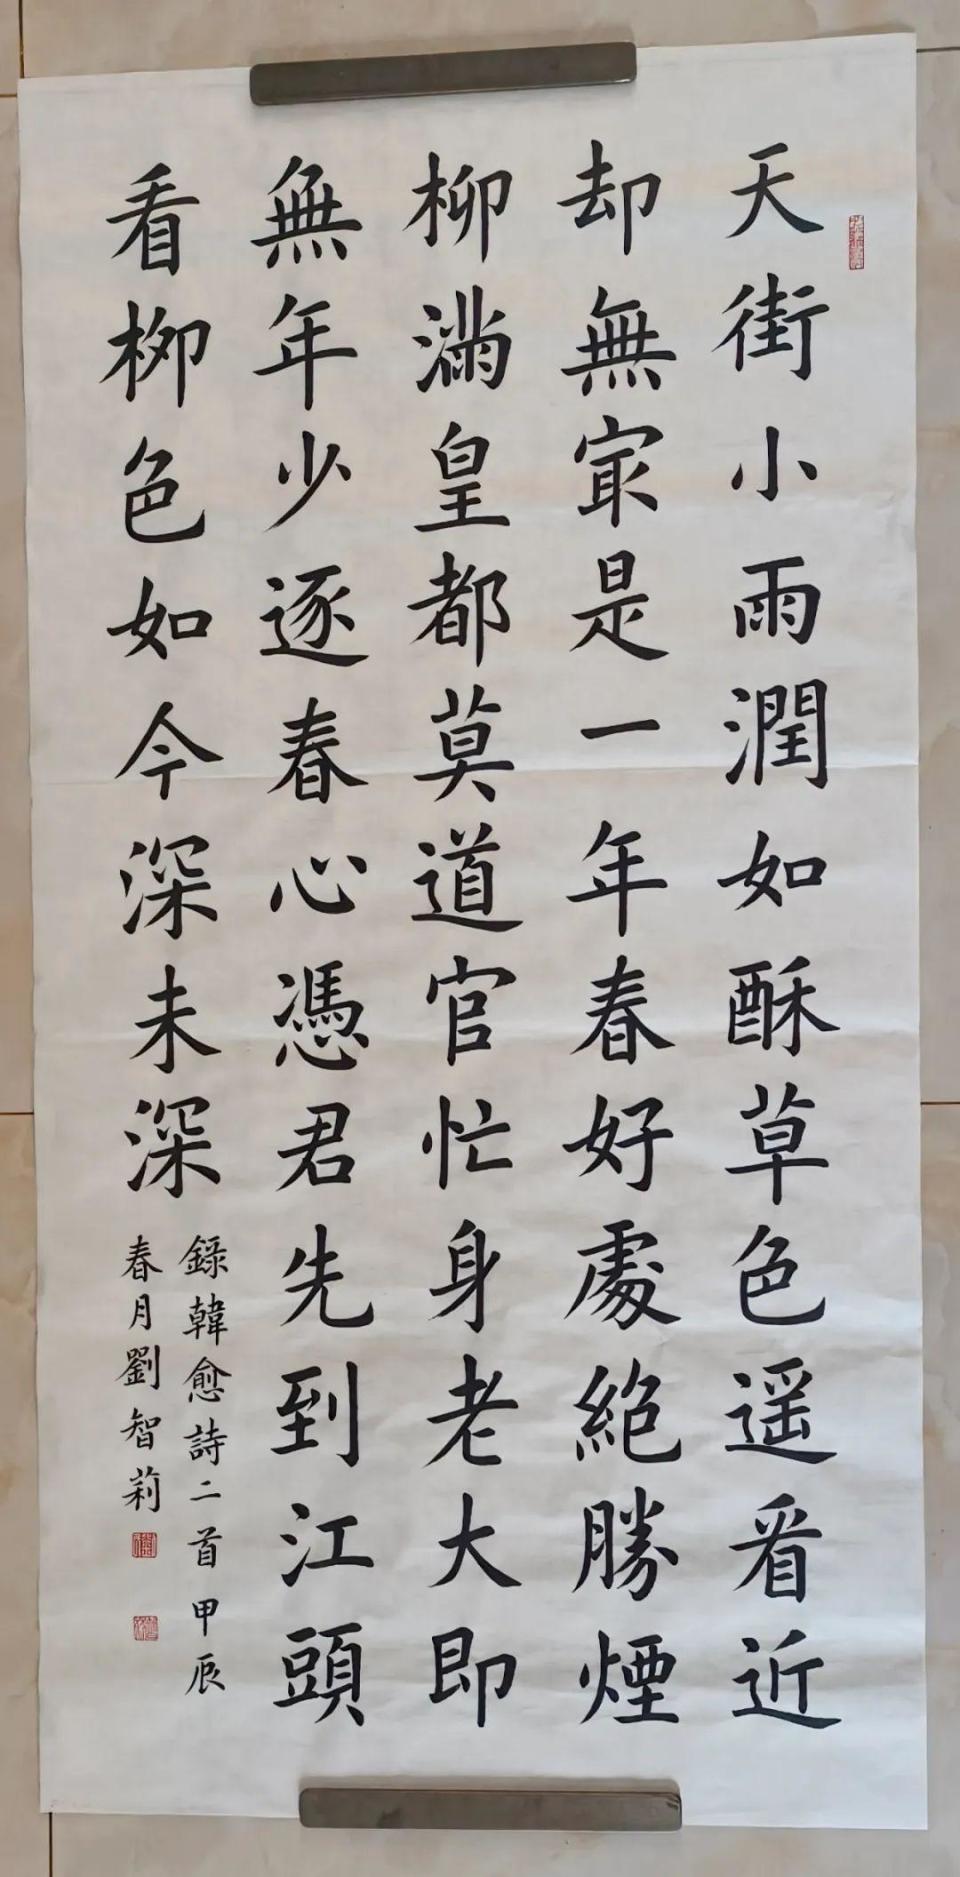 天街小雨潤如酥草色遥看近
却無冣是一年春好處絶勝煙
柳滿皇都莫道官忙身老大即
無年少逐春心憑君先到江頭
看柳色如今深未深
錄韓愈詩二首甲辰
春月劉智莉